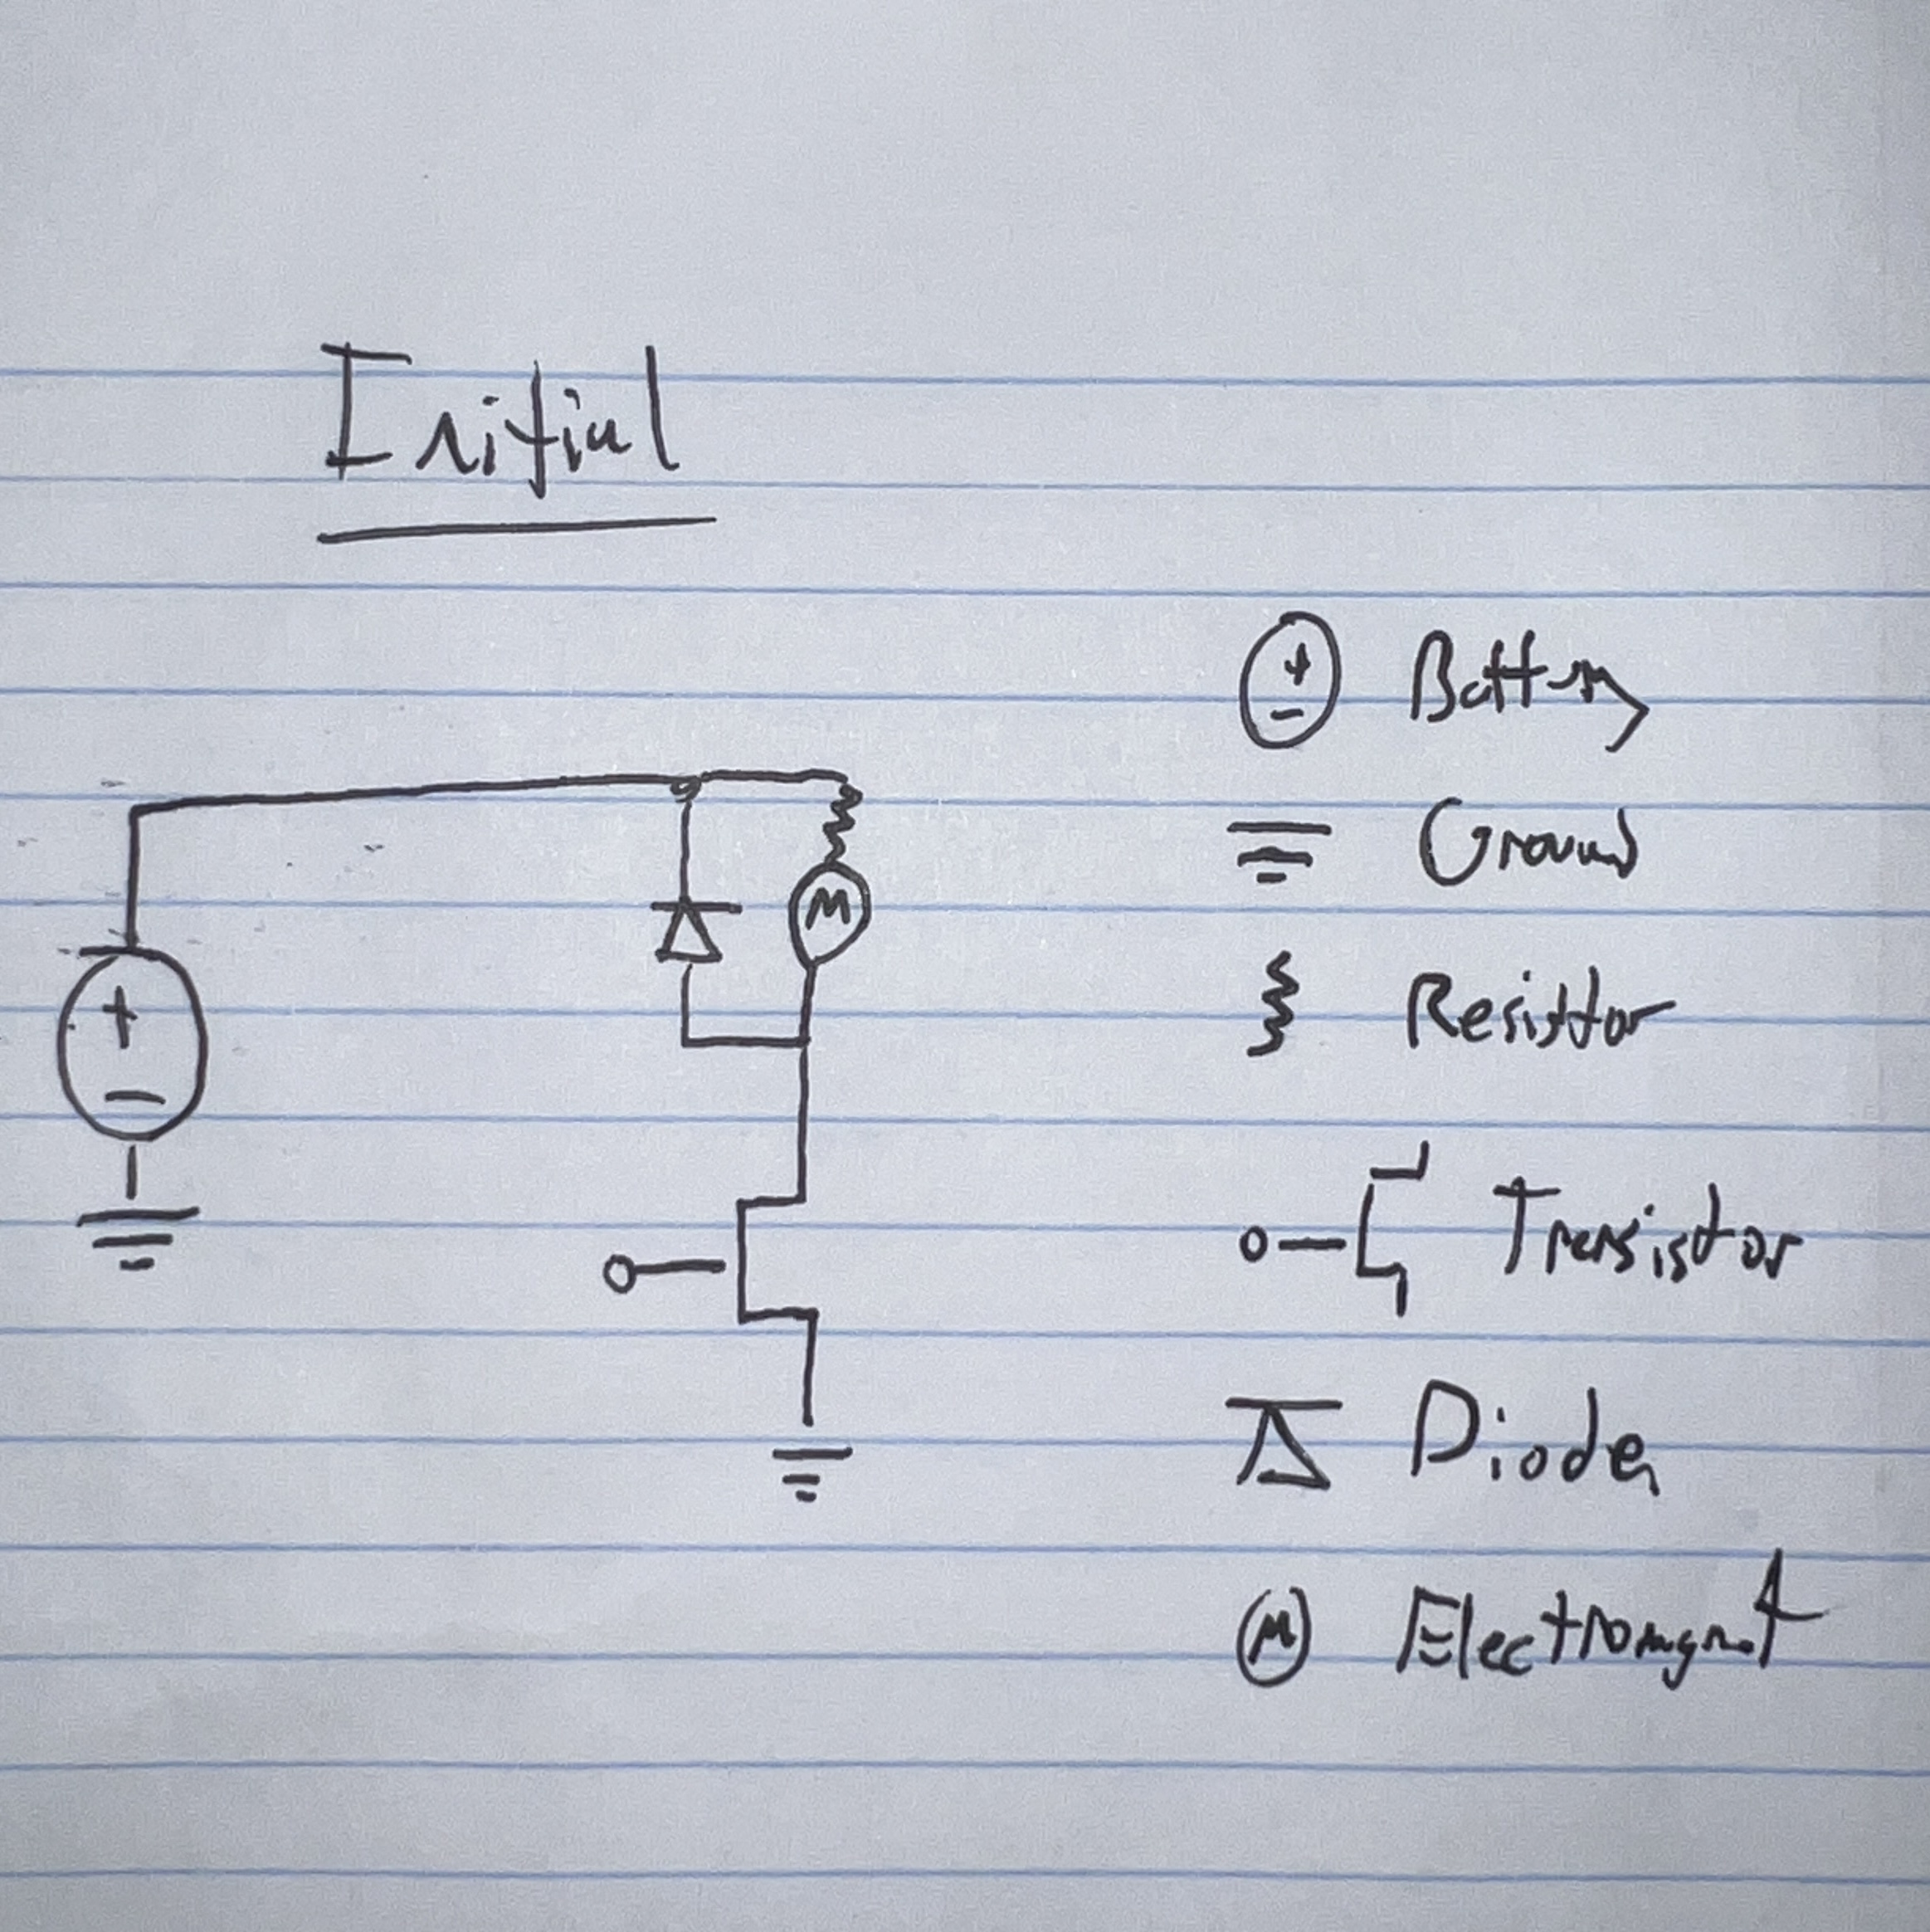 Initial
+
-
M
+
-
Battery
Ground
Resisttor
Transistor
Diode
M Electromgnet